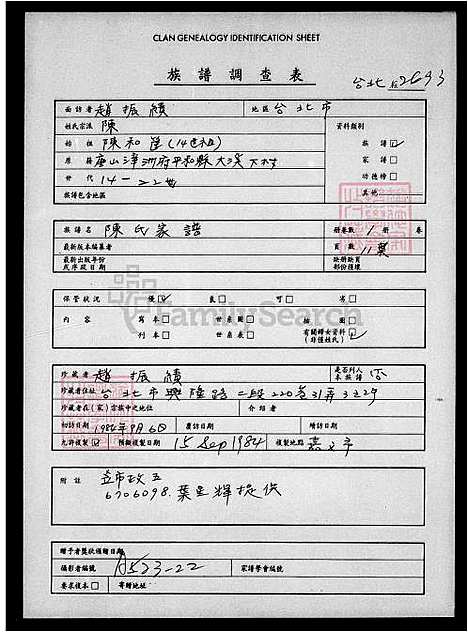 CLAN GENEALOGY IDENTIFICATION SHEET
族譜調查表
台北 2693
面訪者 趙振績 地區 台北市
姓氏宗派 陳 資料類別
始祖 陳和 (14世祖) 族譜 ☑
原籍 唐山漳洲府平和縣大溪 家譜 □
世代 14— 功德榜 □
族譜包含地區 其他
族譜名 陳氏家譜 冊卷數 1 冊 卷
最新版本編纂者 頁數 11葉
最新出版年份 缺冊缺頁
或序跋日期 部份種環
保管狀況 優 ☑ 良 □ 可 □ 劣 □
內容 寫本 □ 世系圖 □ 插圖 □ 有關婦女資料
刊本 □ 世系表 □ (非僅姓氏)
FamilySearch
珍藏者 趙振績 是否列入本族譜 否
珍藏者住址 台北市興隆路二段220巷31弄3之2号
珍藏者在(家)宗族中之地位 介紹者
初訪日期 1984年9月6日 廣訪日期
允許複製 ☑ 預擬複製日期 15 Sep 1984 複製地點
附註 市政
6706098. 葉 輝提供
贈予者獎狀頒贈日期
攝影者編號 A523-22 家譜學會編號
要求複本 □ 寄贈地址